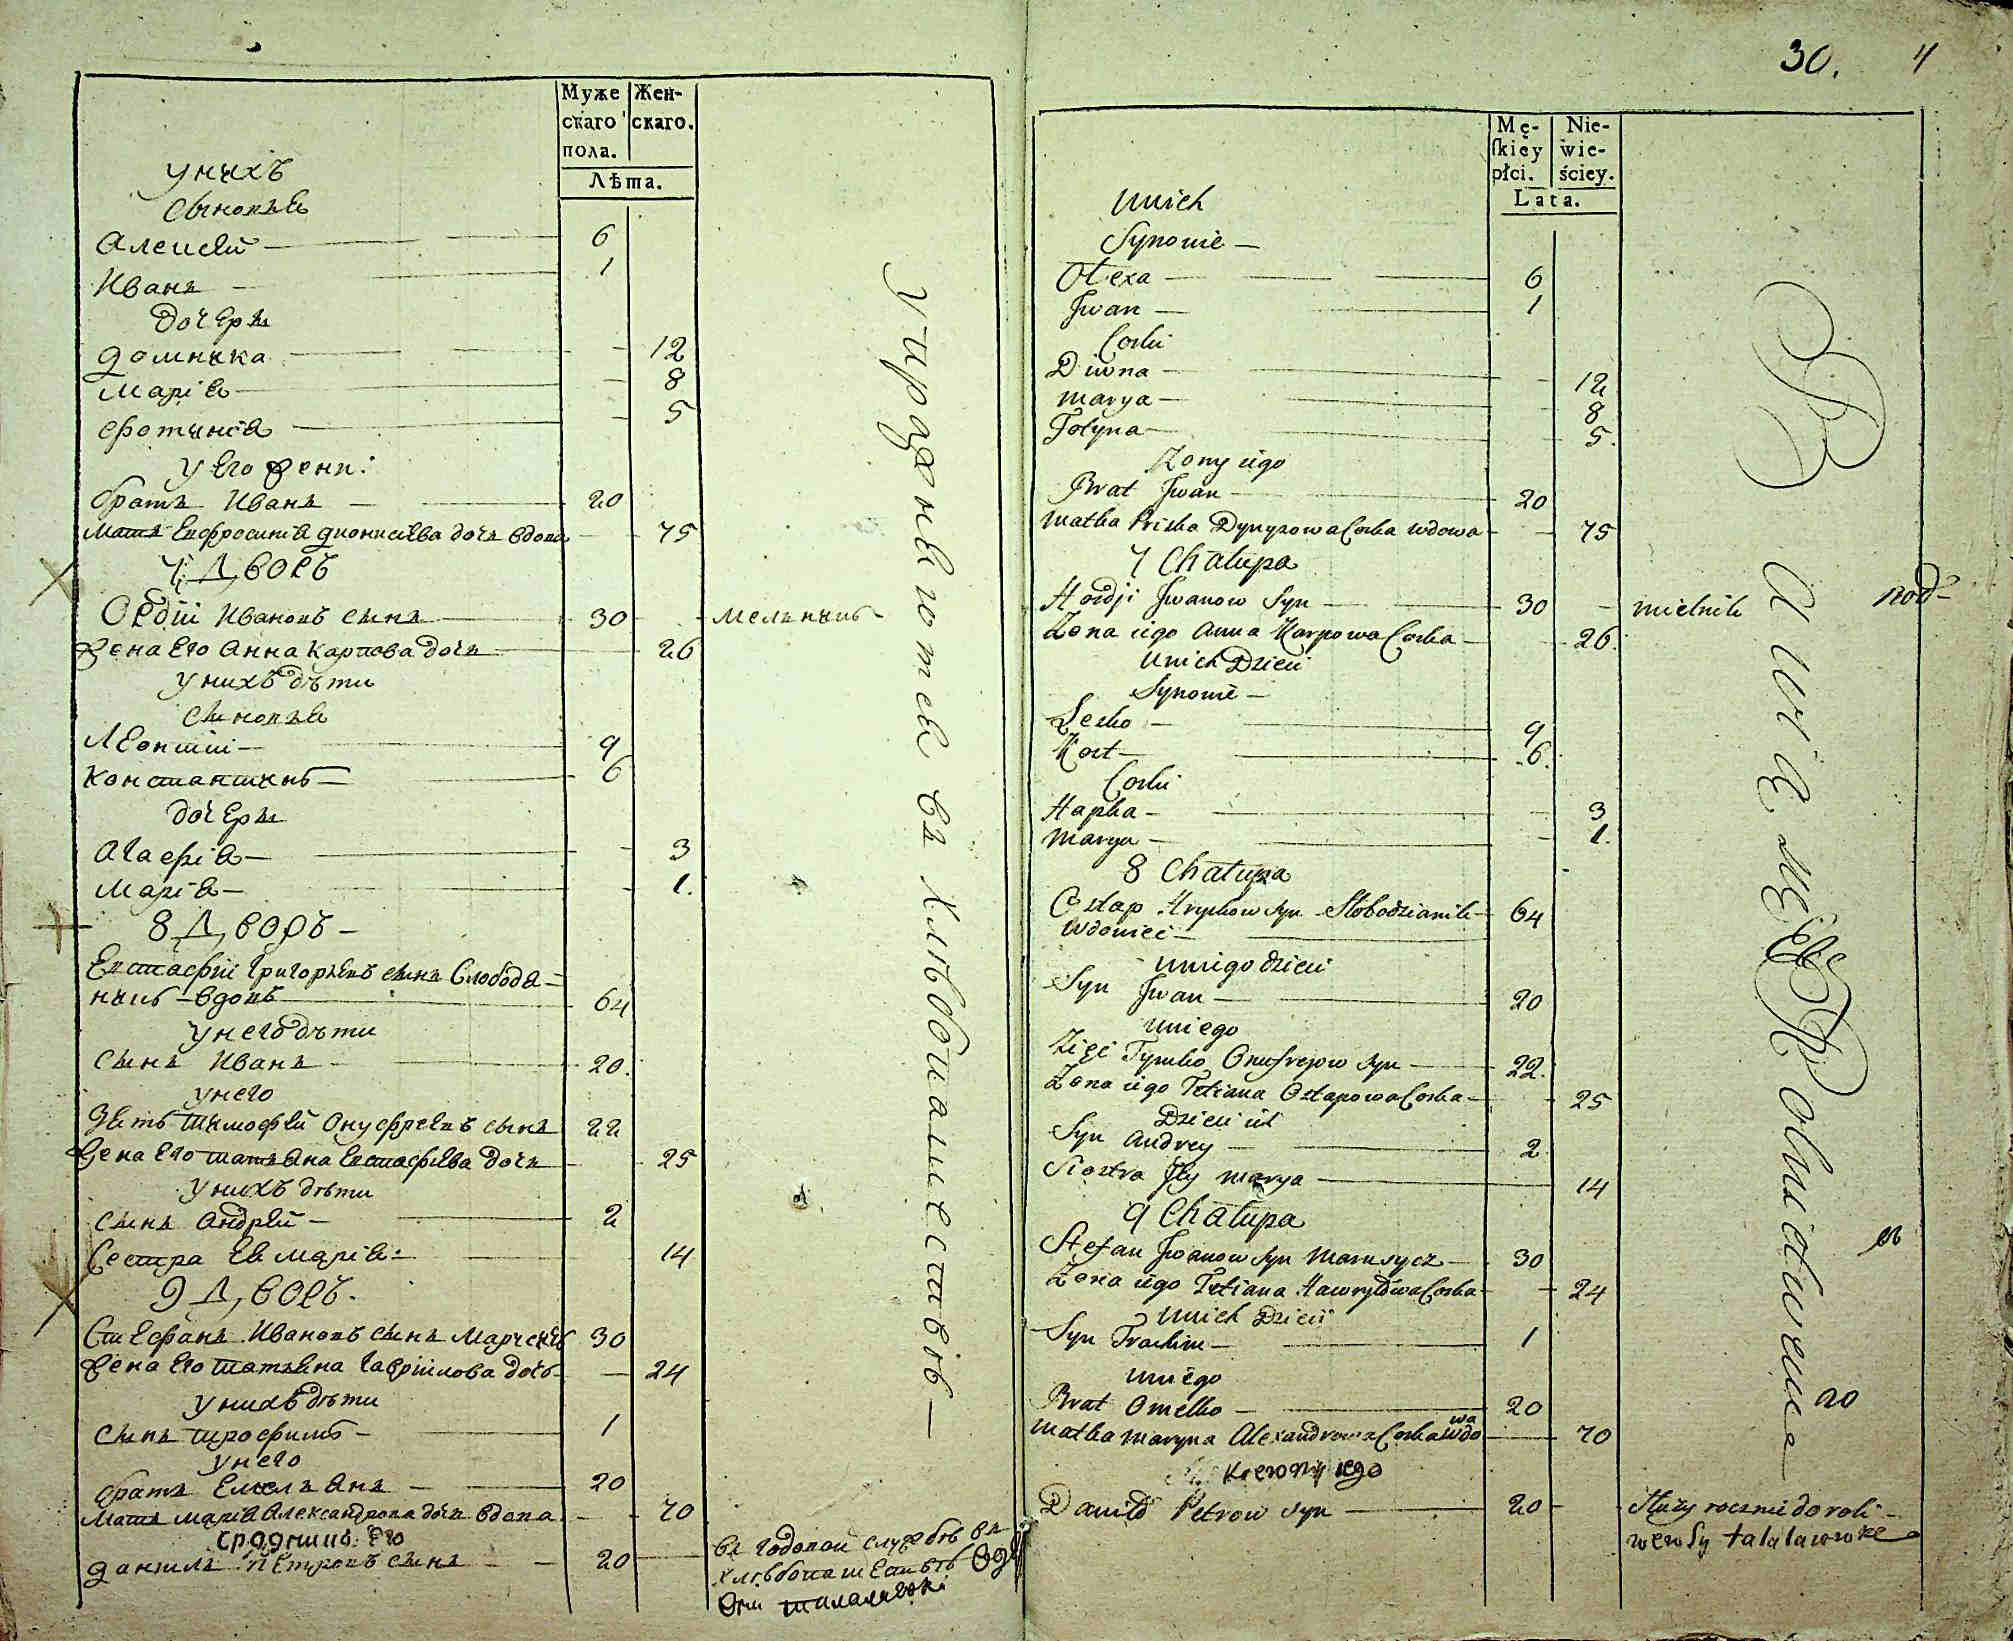 Муже
скаго
пола.
Жен-
скаго.
Лѣта.
у нихъ
сыновья
Алексѣй — 6
Иванъ — 1
дочери
Домника — 12
Марія — 8
Фотинія — 5
у его жени:
братъ Иванъ — 20
мать Евфросинія Дионисіева дочь вдова — 75
7 Дворъ
Ордій Ивановъ сынъ — 30 — мельникъ
жена его Анна Карпова дочь — 26
у нихъ дѣти
сыновья
Леонтій — 9
Константинъ — 6
дочери
Агафія — 3
Марія — 1.
8 Дворъ —
Евстафій Григорьевъ сынъ Слободя-
никъ — вдовъ — 64
у него дѣти
сынъ Иванъ — 20.
у него
зять Тимофей Онуфреевъ сынъ 22
жена его Татьяна Евстафіева дочь — 25
у нихъ дѣти
сынъ Андрей — 2
сестра ея Марія: — 14
9 Дворъ.
Стефанъ Ивановъ сынъ 30
жена его Татьяна Гавріилова дочь — 24
у нихъ дѣти
сынъ Трофимъ — 1
у него
братъ Емельянъ — 20
мать Марія Александрова дочь вдова — 70
сродникъ его
Данило Петровъ сынъ — 20
въ годовой службѣ въ
хлѣбопашествѣ
упражняются въ хлѣбопашествѣ —
30. 4
Mę-
skiey
płci.
Nie-
wie-
ściey.
Lata.
unich
Synowie —
Olexa — 6
Jwan — 1
Corki
Diwna — 12
Marya — 8
Fotyna — 5.
Zony iego
Brat Jwan — 20
Matka Priska Dynyzowa Corka wdowa — 75
7 Chałupa
Hordji Jwanow Syn — 30 — mielnik
Zona iego Anna Karpowa Corka — 26.
unich Dzieci
Synowie —
Lesko — 9
Kost — 6.
Corki
Hapka — 3
Marya — 1.
8 Chałupa
Ostap Hryckow Syn Słobodzianik — 64
wdowiec —
uniego dzieci
Syn Jwan — 20
uniego
Zięć Tymko Onufrejow Syn — 22.
Zona iego Tetiana Ostapowa Corka — 25
Dzieci ich
Syn Andrey — 2
Siostra Jey Marya — 14
9 Chałupa
Stefan Jwanow Syn — 30
Zona iego Tetiana Hawryłowa Corka — 24
unich Dzieci
Syn Trochim — 1
uniego
Brat Omelko — 20
wa
Matka Maryna Alexandrowa Corka wdo — 70
Krewny iego
Daniło Petrow Syn — 20 — służy rocznie do roli —
we wsy Talalaiowke